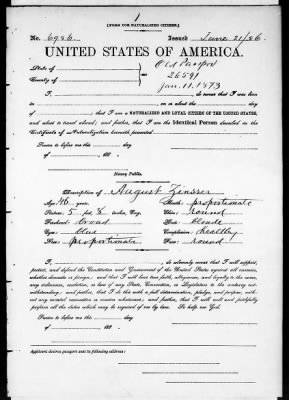 1
[FORM FOR NATURALIZED CITIZEN.]
No. 6986. Issued June 21/86.
UNITED STATES OF AMERICA.
State of Old Passport
County of 26591
Jan. 11. 1873
I, do swear that I was born
in on or about the day
of , that I am a NATURALIZED AND LOYAL CITIZEN OF THE UNITED STATES,
and about to travel abroad; and further, that I am the Identical Person described in the
Certificate of Naturalization herewith presented.
Sworn to before me this day
of , 188 .
Notary Public.
Description of August Zinsser
Age: 46 years. Mouth: proportionate
Stature: 5 feet 8 inches, Eng. Chin: round
Forehead: broad Hair: blonde
Eyes: blue Complexion: healthy
Nose: proportionate Face: round
I, , do solemnly swear that I will support,
protect, and defend the Constitution and Government of the United States against all enemies,
whether domestic or foreign; and that I will bear true faith, allegiance, and loyalty to the same,
any ordinance, resolution, or law of any State, Convention, or Legislature to the contrary not-
withstanding; and further, that I do this with a full determination, pledge, and purpose, with-
out any mental reservation or evasion whatsoever; and further, that I will well and faithfully
perform all the duties which may be required of me by law. So help me God.
Sworn to before me this day
of , 188 .
Applicant desires passport sent to following address: